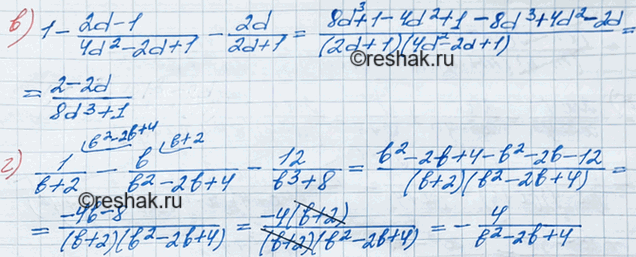 в) 1 - (2d-1)/(4d²-2d+1) - 2d/(2d+1) = (8d³+1-4d²+1-8d³+4d²-2d)/((2d+1)(4d²-2d+1)) =
©reshak.ru
= (2-2d)/(8d³+1)
г) 1/(в+2) (в²-2в+4) - в/(в²-2в+4) (в+2) - 12/(в³+8) = (в²-2в+4-в²-2в-12)/((в+2)(в²-2в+4)) =
©reshak.ru
= (-4в-8)/((в+2)(в²-2в+4)) = (-4(в+2))/((в+2)(в²-2в+4)) = - 4/(в²-2в+4)